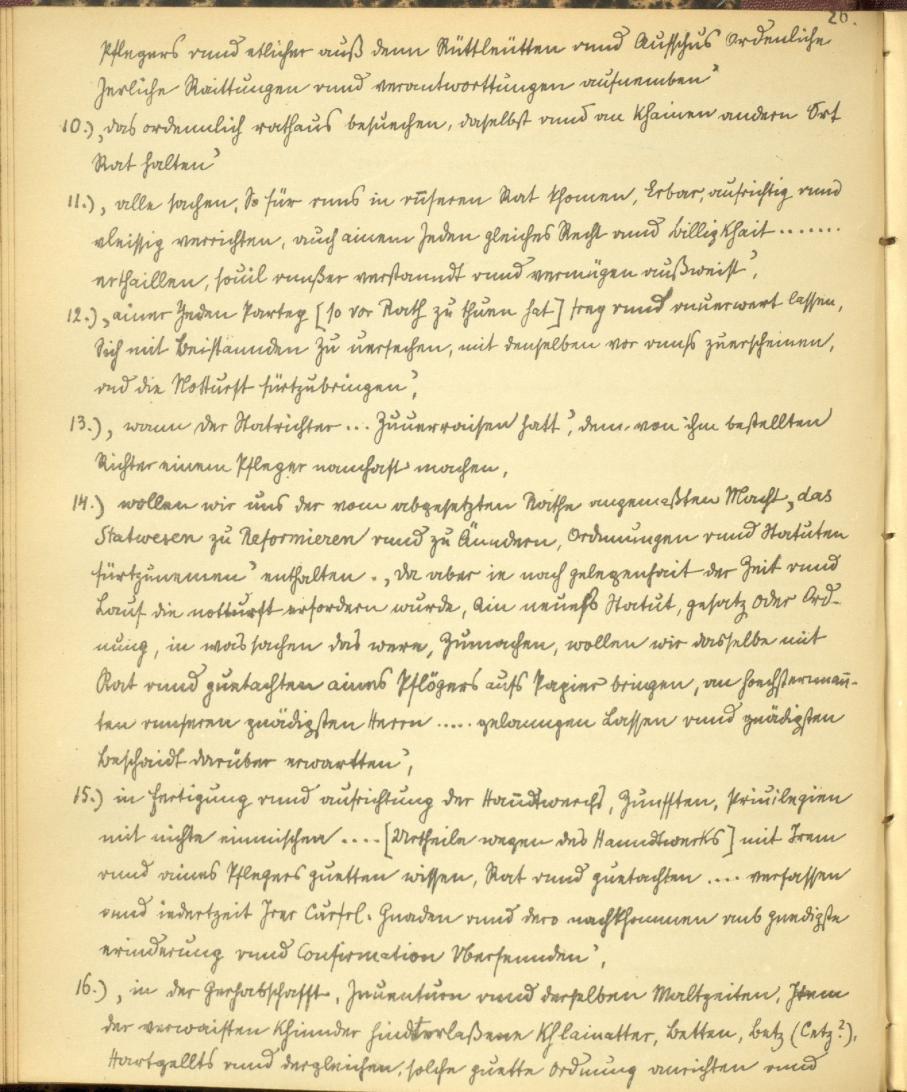 26.
Pflegers unnd etlicher auß denn Rüttleütten unnd Ausschus Ordenliche
Jerliche Raittungen unnd verantworttungen aufnemben"
10.) „das ordennlich rathaus besuechen, daselbst unnd an khainen andern Ort
Rat halten"
11.) „alle sachen, So für unns in unseren Rat khomen, Erbar, aufrichtig unnd
vleissig verrichten, auch ainem Jeden gleiches Recht unnd billigkhait .......
erthaillen, souil unnßer verstanndt unnd vermügen außweist",
12.) „ainer Jeden Partey [so vor Rath zu thuen hat] frey unnd unuerwert lassen,
Sich mit Beistannden Zu uersechen, mit denselben vor unnß zuerscheinen,
und die Notturft fürtzubringen",
13.) „wann der Statrichter ... Zuuerraisen hatt", dem von ihm bestellten
Richter einem Pfleger namhaft machen,
14.) wollen wir uns der vom abgesetzten Rathe angemaßten Macht „das
Statwesen zu Reformieren unnd zu Änndern, Ordnungen unnd Statuten
fürtzunemen" enthalten. „Da aber ie nach gelegenhait der Zeit unnd
Lauf die notturft erfordern wurde, Ain neues Statut, gesatz oder Ord-
nung, in was sachen das were, Zumachen, wollen wir dasselbe mit
Rat unnd guetachten aines Pflögers aufs Papier bringen, an hochsternenn-
ten unnseren gnädigsten Herrn ..... gelanngen Lassen unnd gnädigsten
Beschaidt darüber erwartten",
15.) in fertigung unnd aufrichtung der Handtwerchs, Zunfften, Priuilegien
mit nichte einmischen .... [Urtheile wegen des Hanndtwerks] mit Irem
unnd aines Pflegers guetten wissen, Rat unnd guetachten .... verfassen
unnd iederzeit Irer Curfrl. Gnaden unnd dero nachkhommen umb gnedigste
erinderung unnd Confirmation Übersennden",
16.) „in der Gerhabschafft, Inuenturn unnd derselben Maltzeiten, Item
der verwaisten Khinnder hindterlaßene Khlainatter, Betten, Betz (Cetz?),
Hartgellts unnd dergleichen, solche guette Ordnung anrichten unnd